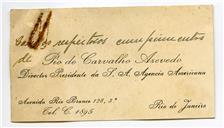 respeitosos cumprimentos
de
Rio de Carvalho Azevedo
Director Presidente da S. A. Agencia Americana
Avenida Rio Branco 128, 3º
Rio de Janeiro
Tel. C. 1895